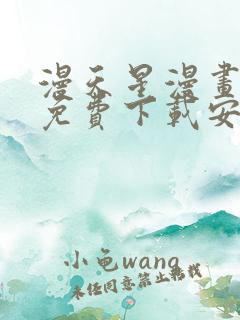 漫天星漫畫
免費下載安
小龟wang
未经同意禁止转载